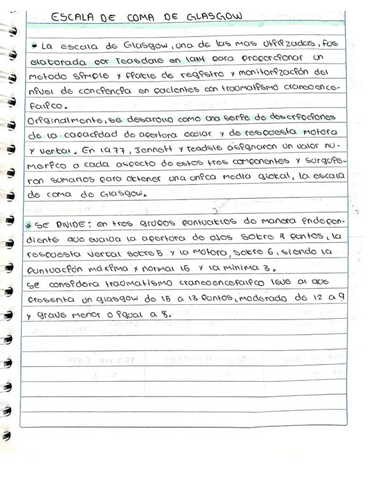 ESCALA DE COMA DE GLASGOW
• La escala de Glasgow, una de las mas utilizadas, fue
elaborada por Teasdale en 1974 para proporcionar un
metodo simple y fiable de registro y monitorización del
nivel de conciencia en pacientes con traumatismo craneoence-
falico.
Originalmente, se desarollo como una serie de descripciones
de la capacidad de apertura ocular y de respuesta motora
y verbal. En 1977, Jennett y teadsle asignaron un valor nu-
merico a cada aspecto de estos tres componentes y sugirie-
ron sumarlos para obtener una unica media global, la escala
de coma de Glasgow.
• SE DIVIDE: en tres grupos puntuables de manera indepen-
diente que evalúa la apertura de ojos sobre 4 puntos, la
respuesta verbal sobre 5 y la motora, sobre 6, siendo la
puntuación maxima y normal 15 y la minima 3.
se considera traumatismo craneoencefalico leve al que
presenta un glasgow de 15 a 13 puntos, moderado de 12 a 9
y grave menor o igual a 8.